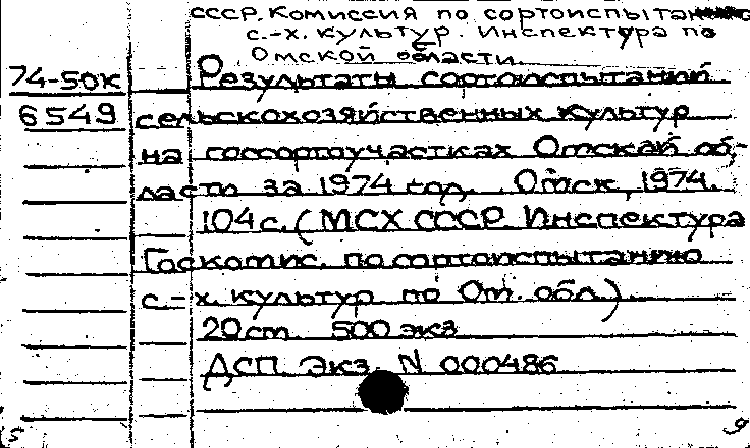 СССР. Комиссия по сортоиспытанию
с.-х. культур. Инспектура по
Омской области.
74-50к Результаты сортоиспытаний
6549 сельскохозяйственных культур
на госсортоучастках Омской об-
ласти за 1974 год. Омск, 1974.
104 с. (МСХ СССР. Инспектура
Госкомис. по сортоиспытанию
с.-х. культур по Ом. обл.)
20 cm 500 экз
ДСП. Экз. N 000486